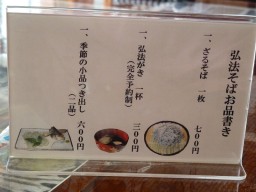 弘法そばお品書き
一、ざるそば 一枚
七〇〇円
一、弘法がき 一杯
(完全予約制)
三〇〇円
一、季節の小品つき出し
(二品)
六〇〇円